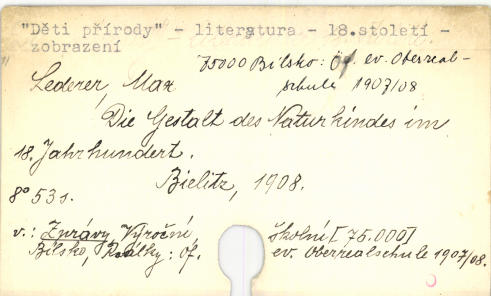 "Děti přírody" - literatura - 18.století -
zobrazení
75000 Bílsko: Öf. ev. Oberreal-
schule 1907/08
Lederer, Max
Die Gestalt des Naturkindes im
18. Jahrhundert.
Bielitz, 1908.
8° 53 s.
v.: Zprávy Výroční, školní [75.000]
Bílsko, Reálky: Öf. ev. Oberrealschule 1907/08.